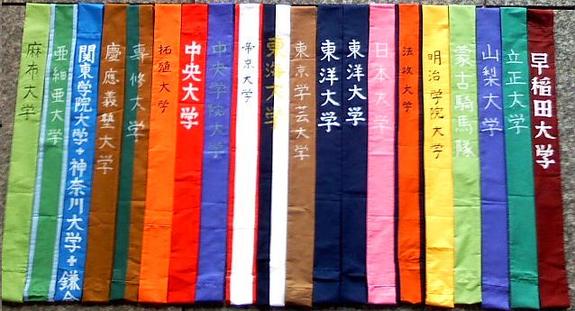 麻布大学
亜細亜大学
関東学院大学+神奈川大学+鎌倉
慶應義塾大学
専修大学
拓殖大学
中央大学
中央学院大学
帝京大学
東海大学
東京学芸大学
東洋大学
東洋大学
日本大学
法政大学
明治学院大学
蒙古騎馬隊
山梨大学
立正大学
早稲田大学